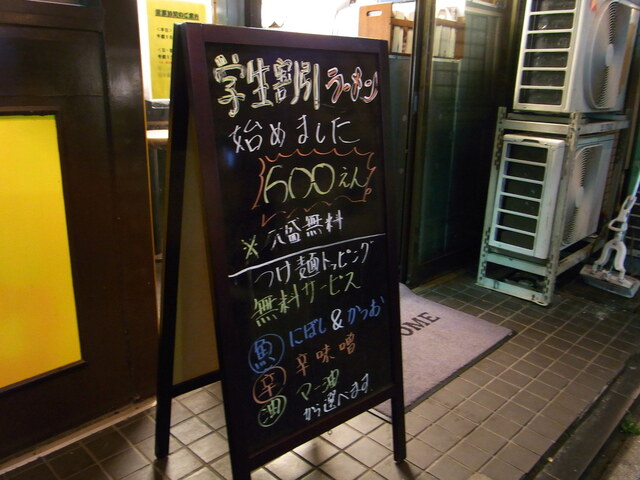 営業時間のご案内
学生割引ラーメン
始めました
600えん
※大盛無料
つけ麺トッピング
無料サービス
魚 にぼし&かつお
辛 辛味噌
油 マー油
から選べます
OME